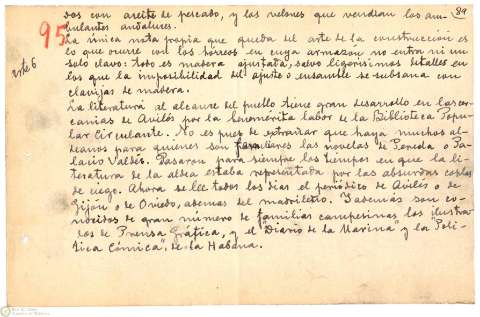 89
dos con aceite de pescado, y los velones que vendian los am-
bulantes andaluces.
95
La única nota propia que queda del arte de la construccion es
lo que ocurre con los hórreos en cuya armazon no entra ni un
arte 6
solo clavo: todo es madera ajustada, salvo ligerisimos detalles en
los que la imposibilidad del ajuste o ensamble se subsana con
clavijas de madera.
La literatura al alcance del pueblo tiene gran desarrollo en las cer-
canias de Avilés por la benemérita labor de la Biblioteca Popu-
lar Circulante. No es pues de extrañar que haya muchos al-
deanos para quienes son familiares las novelas de Pereda o Pa-
lacio Valdés. Pasaron para siempre los tiempos en que la li-
teratura de la aldea estaba representada por las absurdas coplas
de ciego. Ahora se lee todos los dias el periódico de Avilés o de
Gijón o de Oviedo, ademas del madrileño. Y ademas son co-
nocidos de gran número de familias campesinas los ilustra-
dos de Prensa Gráfica, y el "Diario de la Marina" y la "Poli-
tica Cómica", de la Habana.